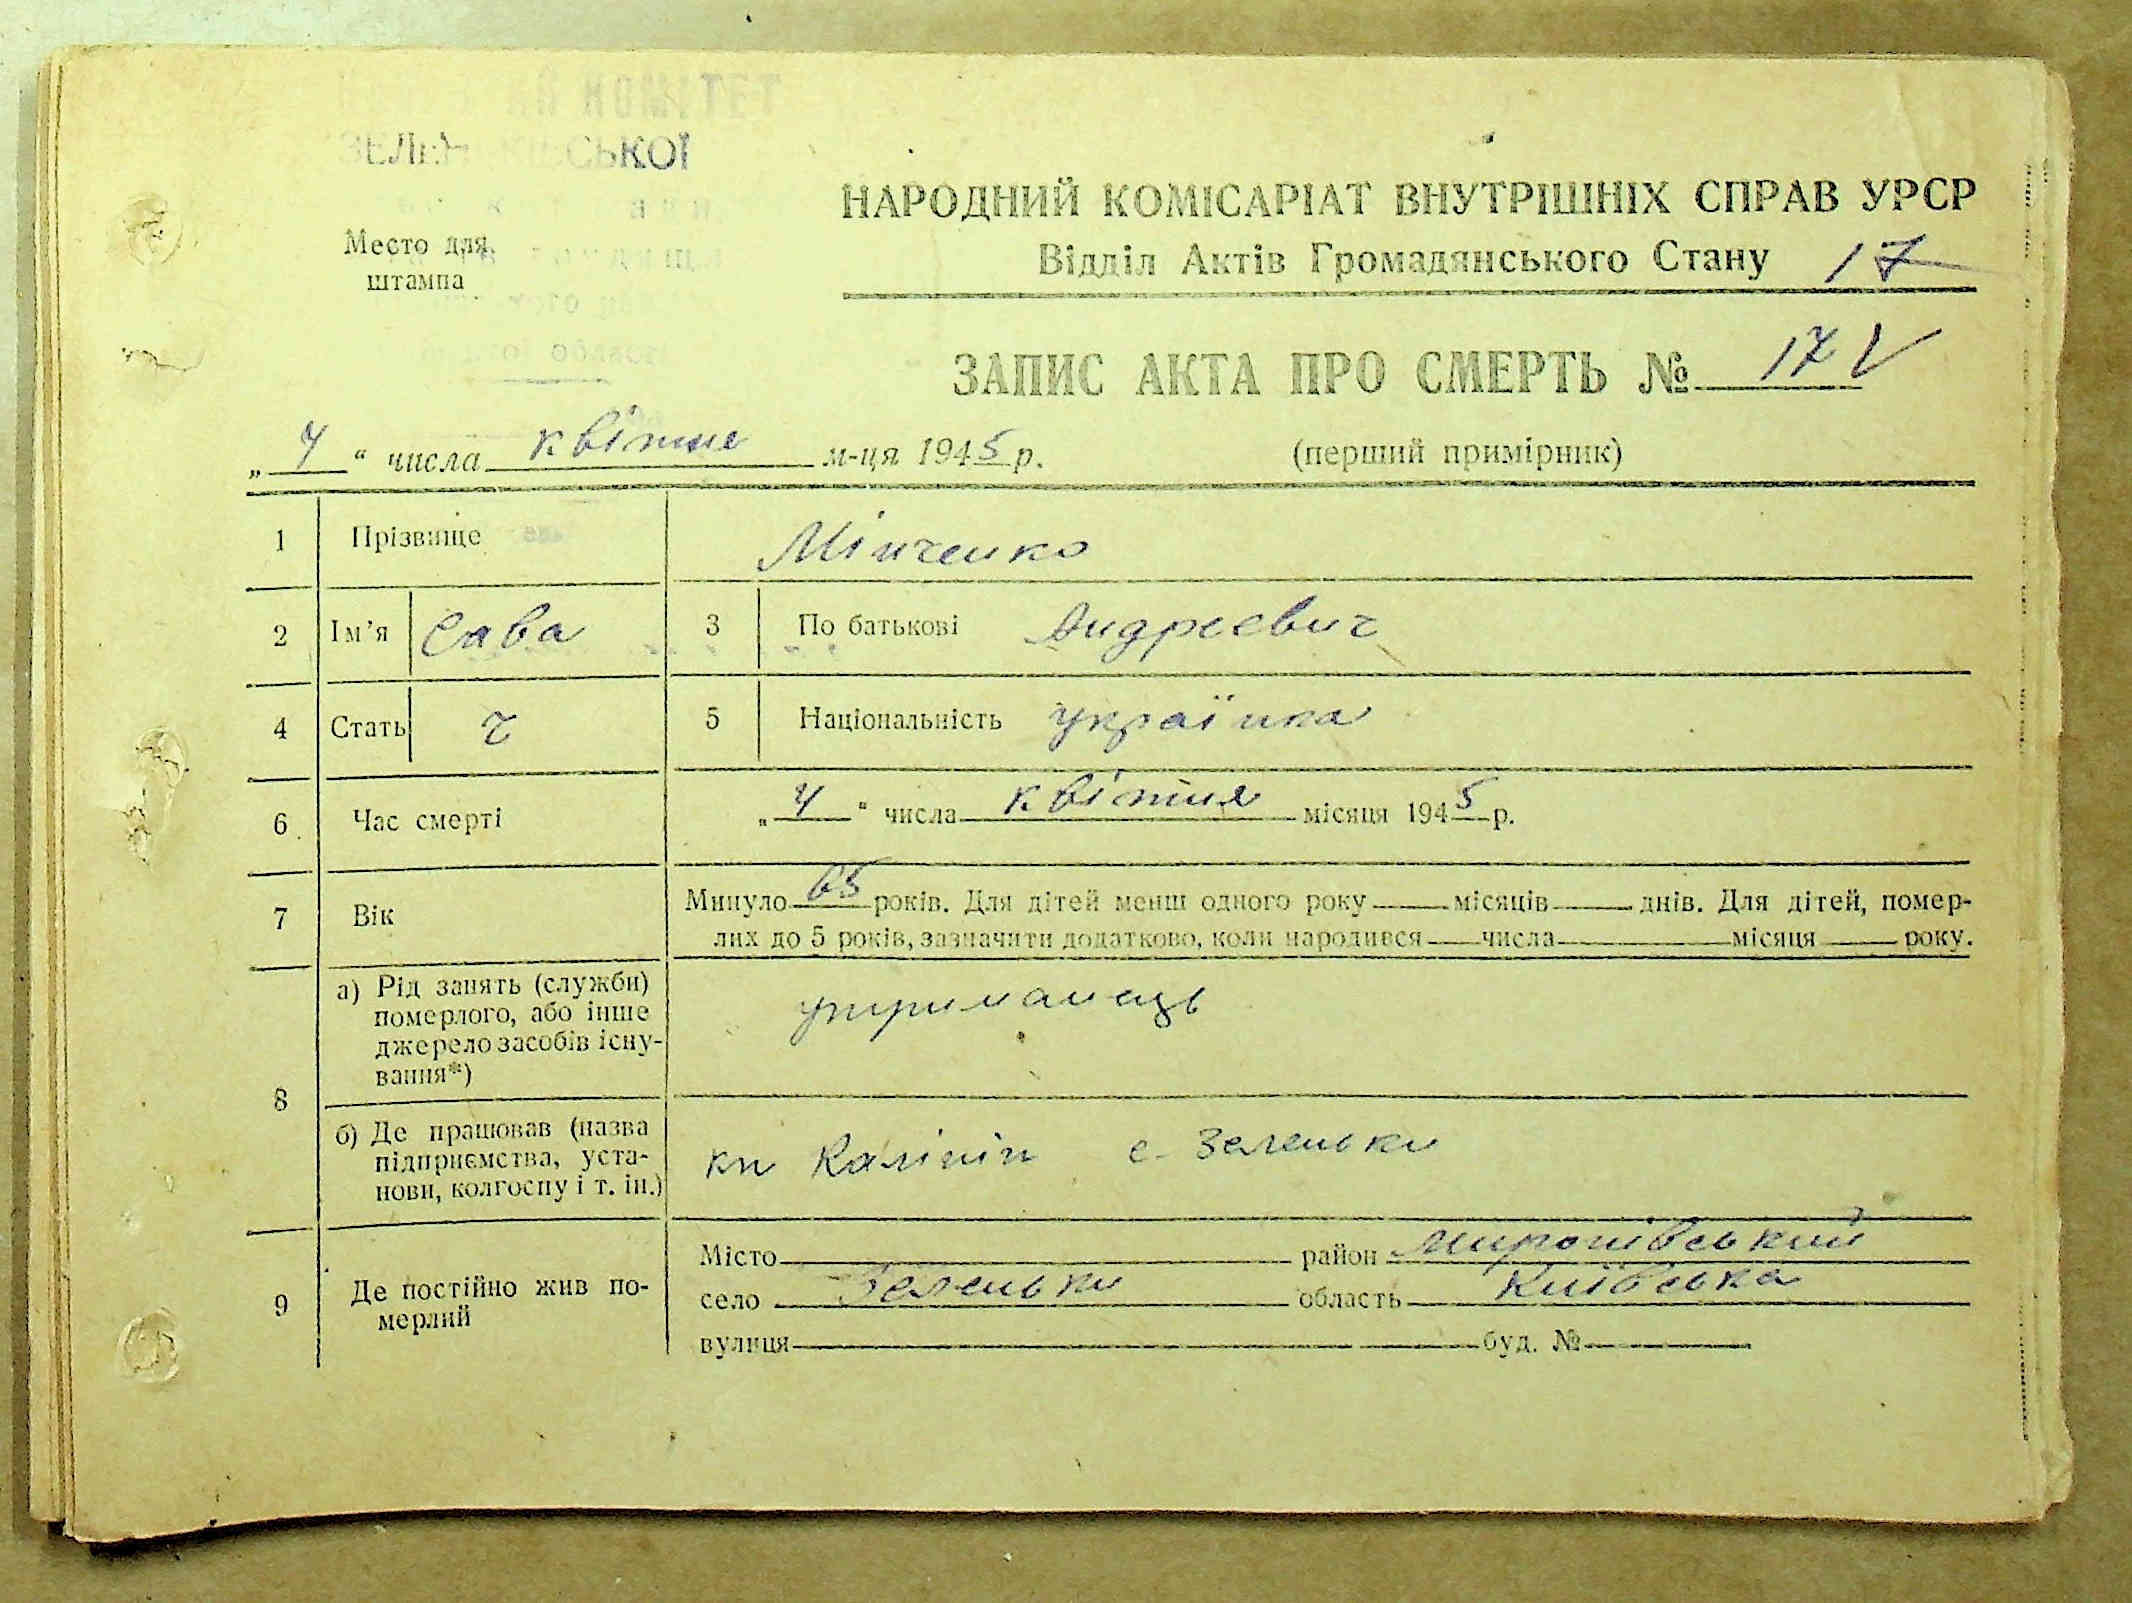 КОМІТЕТ
ЗЕЛЕНЬКІВСЬКОЇ
Место для
штампа
НАРОДНИЙ КОМІСАРІАТ ВНУТРІШНІХ СПРАВ УРСР
Відділ Актів Громадянського Стану 17
ЗАПИС АКТА ПРО СМЕРТЬ № 17 V
„ 4 “ числа квітня м-ця 1945 р. (перший примірник)
1 Прізвище Мінченко
2 Ім’я Сава 3 По батькові Андреевич
4 Стать ч 5 Національність українка
6 Час смерті „ 4 “ числа квітня місяця 1945 р.
7 Вік Минуло 65 років. Для дітей менш одного року місяців днів. Для дітей, помер-
лих до 5 років, зазначити додатково, коли народився числа місяця року.
8 а) Рід занять (служби)
померлого, або інше
джерело засобів існу-
вання*)
утриманець
б) Де працював (назва
підприємства, уста-
нови, колгоспу і т. ін.)
кп Калінін с. Зеленьки
9 Де постійно жив по-
мерлий
Місто район Миронівський
село Зеленьки область Київська
вулиця буд. №